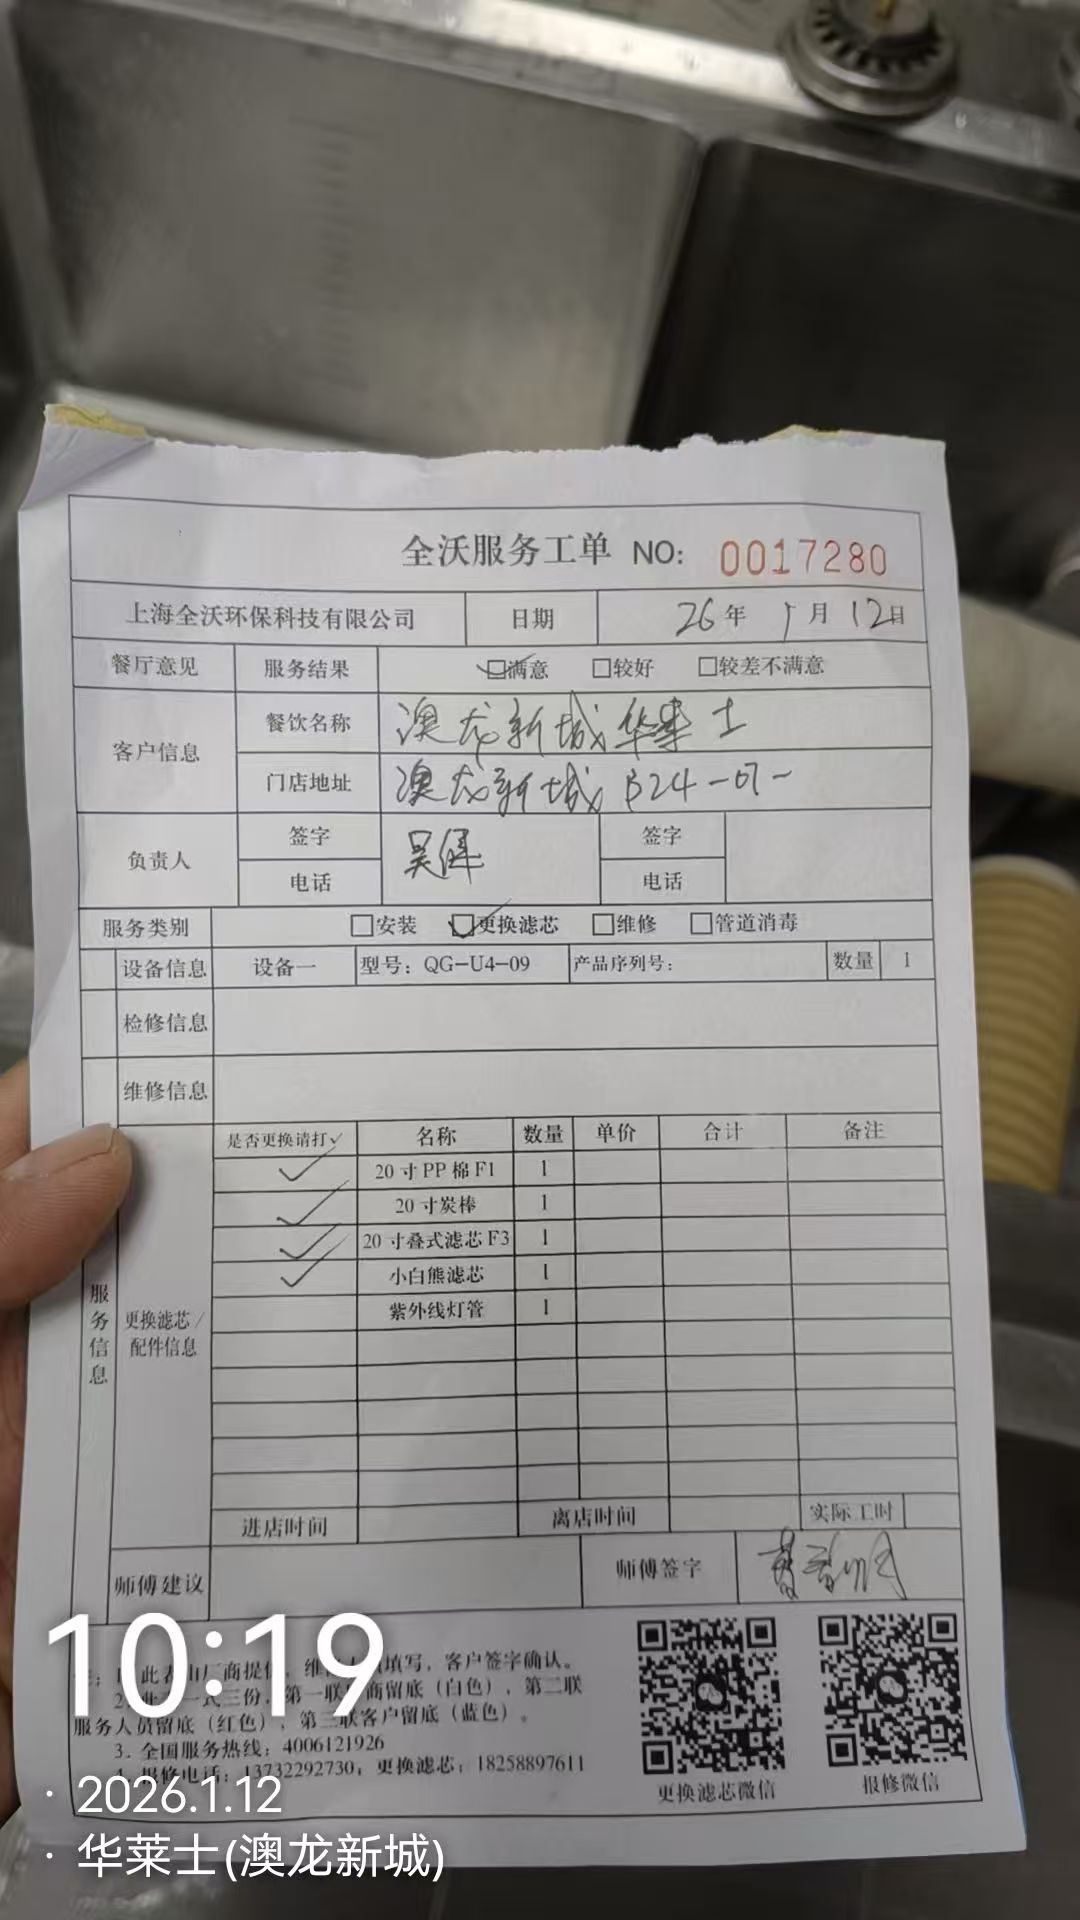 全沃服务工单 NO: 0017280
上海全沃环保科技有限公司 日期 26年 1月 12日
餐厅意见 服务结果 ☑满意 □较好 □较差不满意
客户信息 餐饮名称 澳龙新城华莱士
门店地址 澳龙新城 B24-07-
负责人 签字 吴 签字
电话 电话
服务类别 □安装 ☑更换滤芯 □维修 □管道消毒
设备信息 设备一 型号：QG-U4-09 产品序列号： 数量 1
检修信息
维修信息
服务信息
更换滤芯/配件信息
是否更换请打✓ 名称 数量 单价 合计 备注
✓ 20寸PP棉F1 1
✓ 20寸炭棒 1
✓ 20寸叠式滤芯F3 1
✓ 小白熊滤芯 1
紫外线灯管 1
进店时间 离店时间 实际工时
师傅建议 师傅签字
填写，客户签字确认。
2 一式三份，第一联 商留底（白色），第二联
服务人员留底（红色），第三联客户留底（蓝色）。
3．全国服务热线：4006121926
报修电话：13732292730；更换滤芯：18258897611
更换滤芯微信 报修微信
10:19
· 2026.1.12
· 华莱士(澳龙新城)